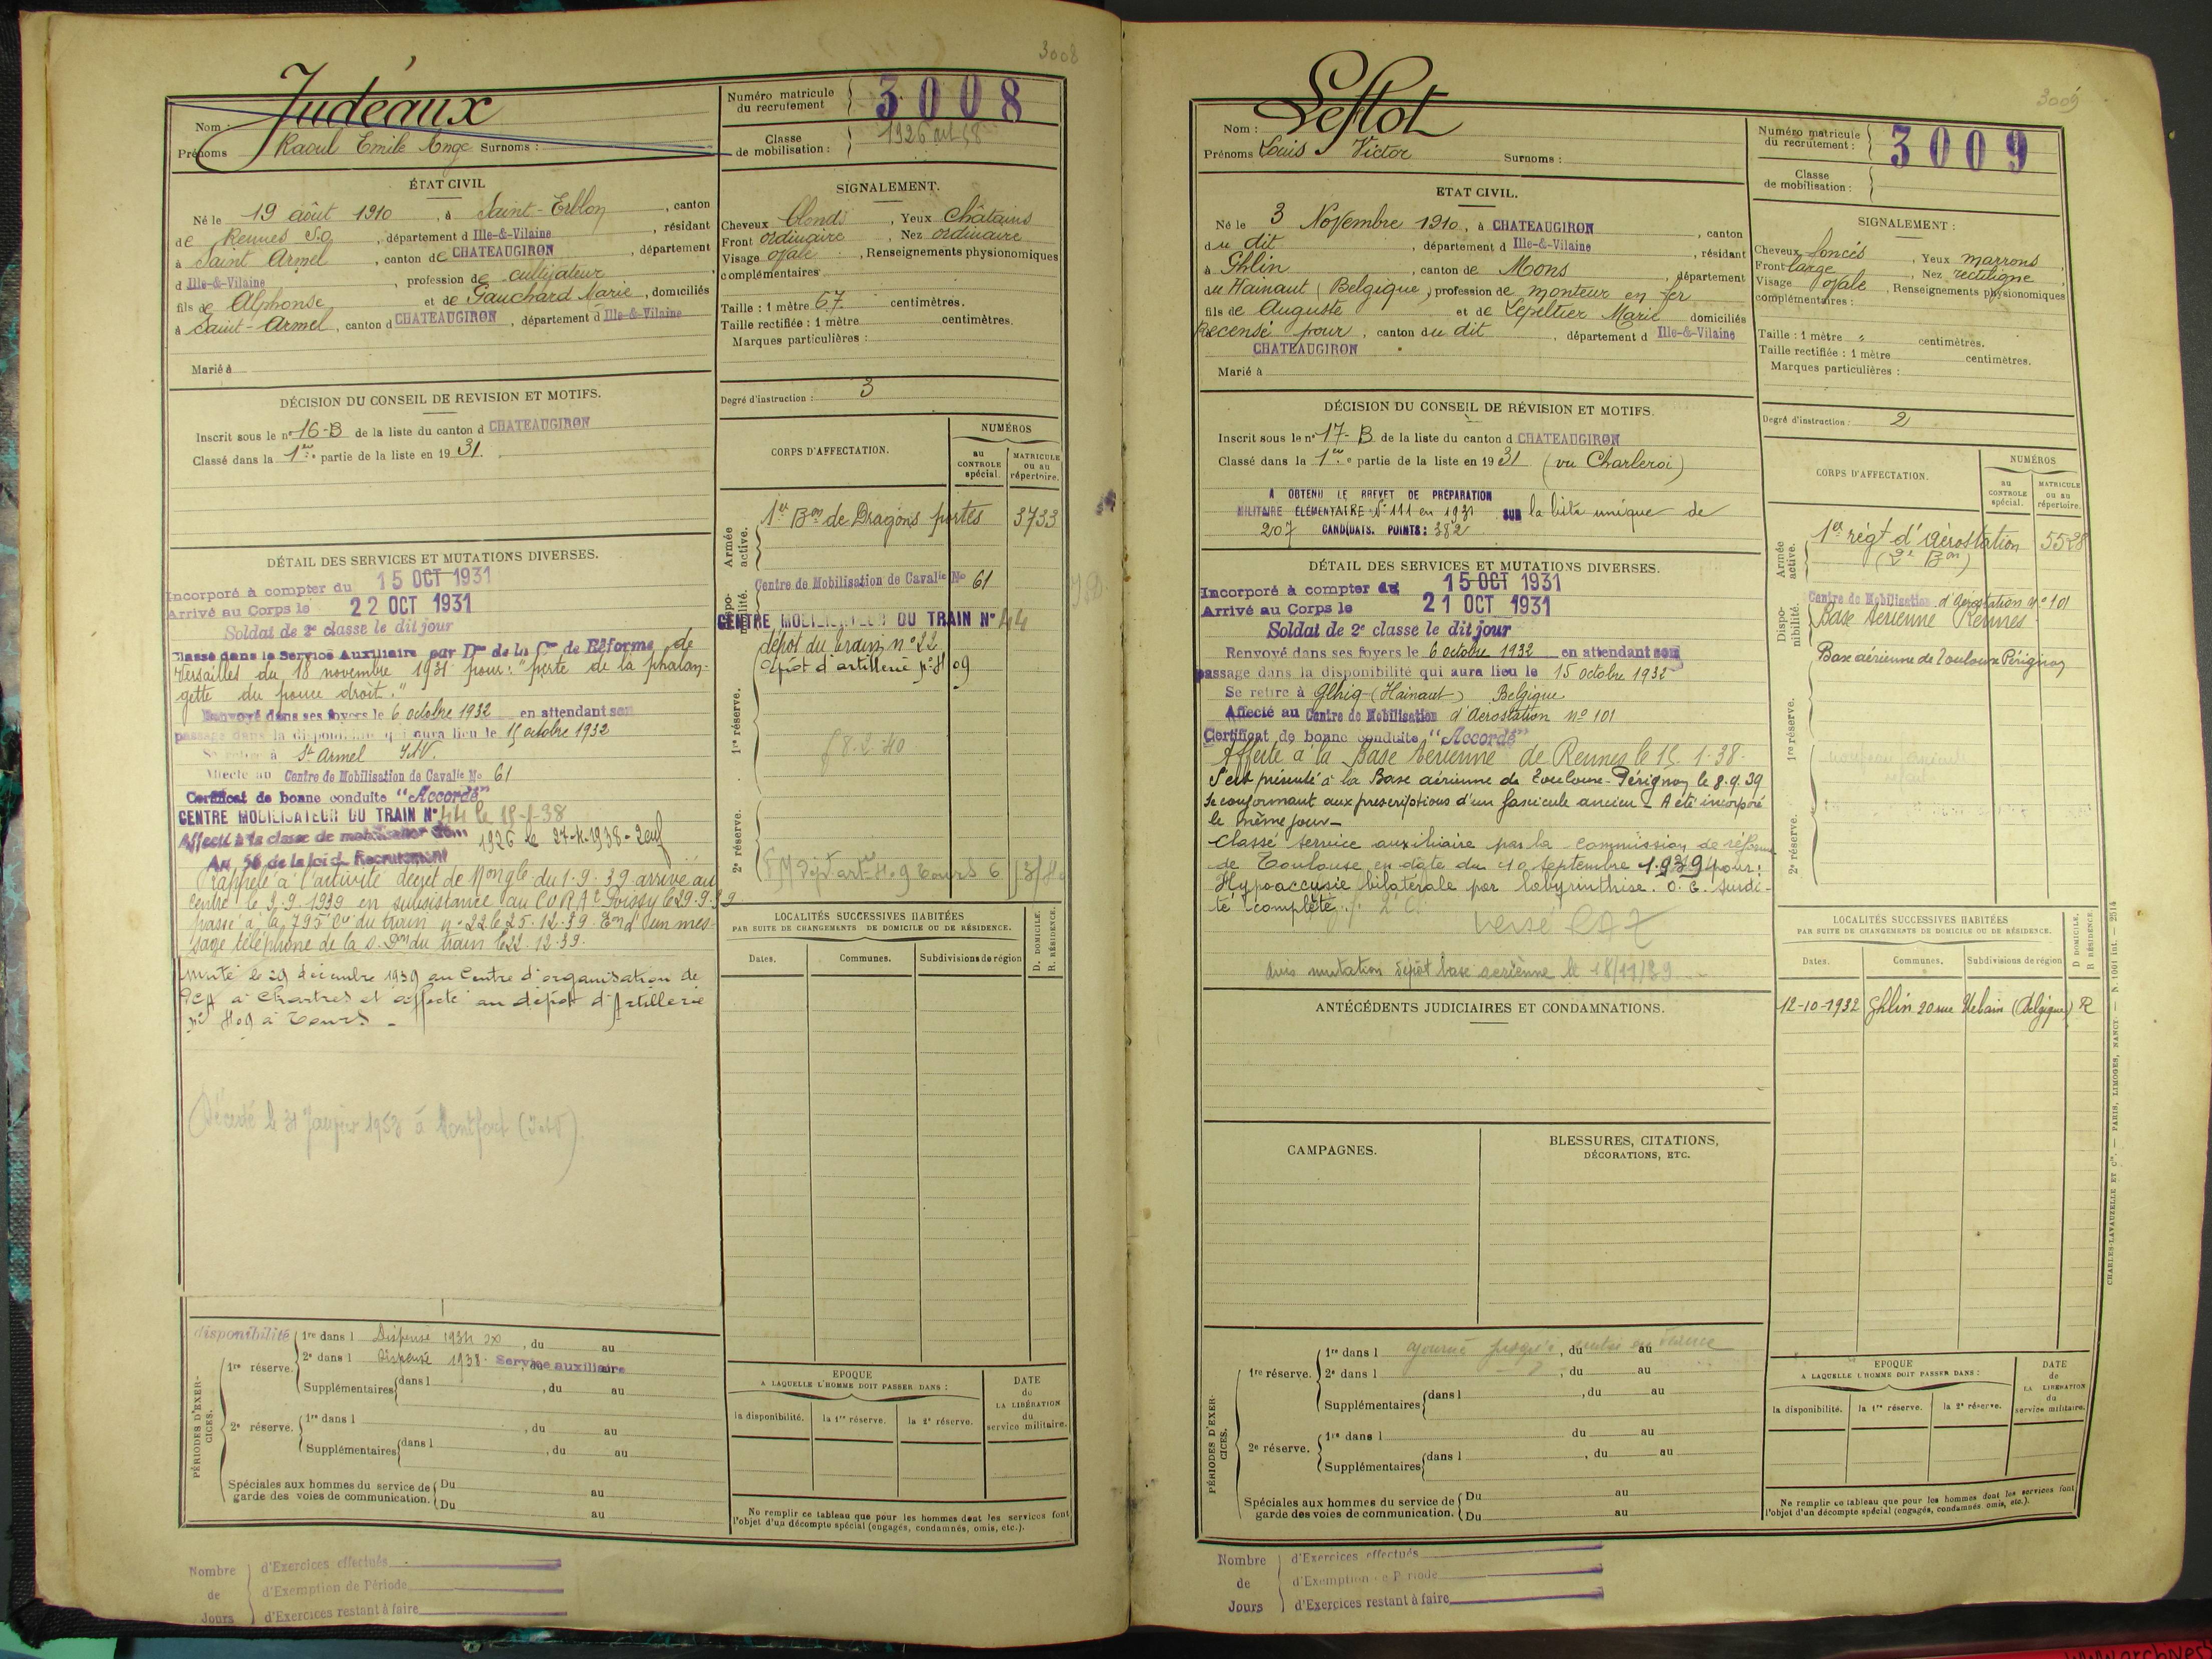 3008
Judéaux
Nom :
Prénoms Raoul Emile Ange Surnoms :
Numéro matricule du recrutement 3008
Classe de mobilisation : 1926
ÉTAT CIVIL
Né le 19 août 1910, à Saint-Erblon, canton
de Rennes S.O, département d Ille-&-Vilaine, résidant
à Saint Armel, canton de CHATEAUGIRON, département
d Ille-&-Vilaine, profession de cultivateur
fils de Alphonse et de Gauchard Marie, domiciliés
à Saint-Armel, canton d CHATEAUGIRON, département d Ille-&-Vilaine
Marié à
SIGNALEMENT.
Cheveux blonds, Yeux châtains
Front ordinaire, Nez ordinaire
Visage ovale, Renseignements physionomiques
complémentaires
Taille : 1 mètre 67 centimètres.
Taille rectifiée : 1 mètre centimètres.
Marques particulières :
Degré d'instruction : 3
DÉCISION DU CONSEIL DE REVISION ET MOTIFS.
Inscrit sous le n° 16-B de la liste du canton d CHATEAUGIRON
Classé dans la 1re partie de la liste en 1931.
DÉTAIL DES SERVICES ET MUTATIONS DIVERSES.
Incorporé à compter du 15 OCT 1931
Arrivé au Corps le 22 OCT 1931
Soldat de 2e classe le dit jour
Classé dans le Service Auxiliaire par Don de la Con de Réforme de
Versailles du 18 novembre 1931 pour : "perte de la phalan-
gette du pouce droit."
Renvoyé dans ses foyers le 6 octobre 1932 en attendant son
passage dans la disponibilité qui aura lieu le 15 octobre 1932
Se retire à St Armel I&V.
Affecté au Centre de Mobilisation de Cavalie No 61
Certificat de bonne conduite "Accordé"
CENTRE MOBILISATEUR DU TRAIN N° 44 le 15-1-38
Affecté à la classe de mobilisation de 1926 le 27-4-1938
Art. 58 de la loi de Recrutement
Rappelé à l'activité décret de Mon gle du 1.9.39 arrivé au
centre le 3.9.1939 en subsistance au CORAE Poissy le 29.9.39
passé à la 795e Cie du train n° 22 le 25.12.39. Eon d'un mes-
sage téléphoné de la D. Don du train le 22.12.39.
muté le 29 décembre 1939 au Centre d'organisation de
DCA à Chartres et affecté au dépôt d'Artillerie
n° 409 à Tours -
Décédé le 31 Janvier 1953 à Montfort (I&V).
CORPS D'AFFECTATION.
NUMÉROS
au CONTROLE spécial.
MATRICULE ou au répertoire.
Armée active.
1er Bon de Dragons portés 3733
Disponibilité.
Centre de Mobilisation de Cavalie No 61
CENTRE MOBILISATEUR DU TRAIN N° 44
dépôt du train n° 22
dépôt d'artillerie n° 409
1re réserve.
8.2.40
2e réserve.
LOCALITÉS SUCCESSIVES HABITÉES
PAR SUITE DE CHANGEMENTS DE DOMICILE OU DE RÉSIDENCE.
Dates. Communes. Subdivisions de région
D. DOMICILE.
R. RÉSIDENCE.
PÉRIODES D'EXERCICES.
disponibilité
1re réserve.
1re dans l Dispensé 1934, du au
2e dans l Dispensé 1938. Service auxiliaire
Supplémentaires dans l, du au
2e réserve.
1re dans l, du au
Supplémentaires dans l, du au
Spéciales aux hommes du service de garde des voies de communication. Du au
Du au
EPOQUE
A LAQUELLE L'HOMME DOIT PASSER DANS :
la disponibilité. la 1re réserve. la 2e réserve.
DATE de LA LIBÉRATION du service militaire.
Ne remplir ce tableau que pour les hommes dont les services font
l'objet d'un décompte spécial (engagés, condamnés, omis, etc.).
Nombre de Jours
d'Exercices effectués
d'Exemption de Période
d'Exercices restant à faire
3009
Leflot
Nom :
Prénoms Louis Victor Surnoms :
Numéro matricule du recrutement : 3009
Classe de mobilisation :
ETAT CIVIL.
Né le 3 Novembre 1910, à CHATEAUGIRON, canton
du dit, département d Ille-&-Vilaine, résidant
à Ghlin, canton de Mons, département
du Hainaut (Belgique) profession de monteur en fer
fils de Auguste et de Lepeltier Marie domiciliés
Recensé pour, canton du dit, département d Ille-&-Vilaine
CHATEAUGIRON
Marié à
SIGNALEMENT :
Cheveux foncés, Yeux marrons
Front large, Nez rectiligne
Visage ovale, Renseignements physionomiques
complémentaires :
Taille : 1 mètre " centimètres.
Taille rectifiée : 1 mètre centimètres.
Marques particulières :
Degré d'instruction : 2
DÉCISION DU CONSEIL DE RÉVISION ET MOTIFS.
Inscrit sous le n° 17-B de la liste du canton d CHATEAUGIRON
Classé dans la 1re partie de la liste en 1931 (vu Charleroi)
A OBTENU LE BREVET DE PRÉPARATION
MILITAIRE ÉLÉMENTAIRE N° 111 en 1931 SUR la liste unique de
207 CANDIDATS. POINTS : 382
DÉTAIL DES SERVICES ET MUTATIONS DIVERSES.
Incorporé à compter du 15 OCT 1931
Arrivé au Corps le 21 OCT 1931
Soldat de 2e classe le dit jour
Renvoyé dans ses foyers le 6 octobre 1932 en attendant son
passage dans la disponibilité qui aura lieu le 15 octobre 1932
Se retire à Glhig (Hainaut) Belgique
Affecté au Centre de Mobilisation d'Aérostation n° 101
Certificat de bonne conduite "Accordé"
Affecté à la Base Aérienne de Rennes le 15.1.38.
S'est présenté à la Base aérienne de Toulouse-Pérignon le 8.9.39
se conformant aux prescriptions d'un fascicule ancien - A été incorporé
le même jour -
Classé service auxiliaire par la commission de réforme
de Toulouse en date du 10 septembre 1939 pour :
Hypoaccusie bilatérale par labyrinthise. O.G. surdi-
té complète.
versé CA7
Avis mutation dépôt base aérienne le 18/11/39
CORPS D'AFFECTATION.
NUMÉROS
au CONTROLE spécial.
MATRICULE ou au répertoire.
Armée active.
1er régt d'aérostation 5528
(2e Bon)
Disponibilité.
Centre de Mobilisation d'Aérostation n° 101
Base Aérienne Rennes
Base aérienne de Toulouse Pérignon
1re réserve.
2e réserve.
ANTÉCÉDENTS JUDICIAIRES ET CONDAMNATIONS.
LOCALITÉS SUCCESSIVES HABITÉES
PAR SUITE DE CHANGEMENTS DE DOMICILE OU DE RÉSIDENCE.
Dates. Communes. Subdivisions de région
D. DOMICILE.
R. RÉSIDENCE.
12-10-1932 Ghlin 20 rue Urbain (Belgique) R
CAMPAGNES.
BLESSURES, CITATIONS, DÉCORATIONS, ETC.
PÉRIODES D'EXERCICES.
1re réserve.
1re dans l ajourné jusqu'à rentrée en France, du au
2e dans l, du au
Supplémentaires dans l, du au
2e réserve.
1re dans l du au
Supplémentaires dans l, du au
Spéciales aux hommes du service de garde des voies de communication. Du au
Du au
EPOQUE
A LAQUELLE L'HOMME DOIT PASSER DANS :
la disponibilité. la 1re réserve. la 2e réserve.
DATE de LA LIBÉRATION du service militaire.
Ne remplir ce tableau que pour les hommes dont les services font
l'objet d'un décompte spécial (engagés, condamnés, omis, etc.).
CHARLES-LAVAUZELLE ET Cie. — PARIS, LIMOGES, NANCY. — N. 1001 int. — 2514
Nombre de Jours
d'Exercices effectués
d'Exemption de Période
d'Exercices restant à faire